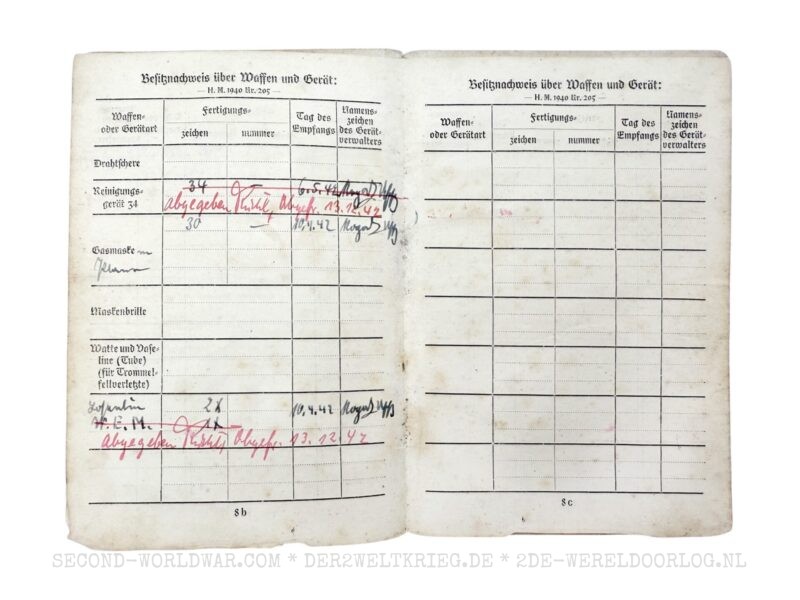 Besitznachweis über Waffen und Gerät:
— H. M. 1940 Nr. 205 —
Waffen-
oder Gerätart
Fertigungs-
zeichen
nummer
Tag des
Empfangs
Namens-
zeichen
des Gerät-
verwalters
Drahtschere
Reinigungs-
gerät 34
34 — 6.5.42
abgegeben 13.12.42
30 — 10.4.42
Gasmaske
Maskenbrille
Watte und Vase-
line (Tube)
(für Trommel-
fellverletzte)
2x 10.4.42
H. E. M. 1x
abgegeben 13.12.42
8b
Besitznachweis über Waffen und Gerät:
— H. M. 1940 Nr. 205 —
Waffen-
oder Gerätart
Fertigungs-
zeichen
nummer
Tag des
Empfangs
Namens-
zeichen
des Gerät-
verwalters
8c
SECOND-WORLDWAR.COM * DER2WELTKRIEG.DE * 2DE-WERELDOORLOG.NL